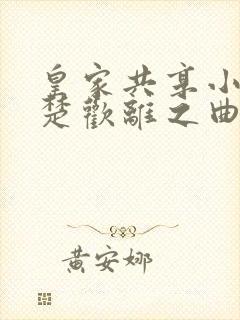 皇家共享小
楚歡離之曲
黃安娜